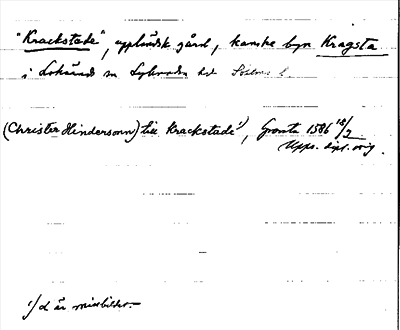 "Krackstade", uppländsk gård, kanske byn Kragsta
i Lohärads sn Lyhundra hd Sthlms l
(Christer Hindersonn) till Krackstade¹), Gransta 1586 18/2
Upps. dipl. orig.
¹/ d är missbildat.